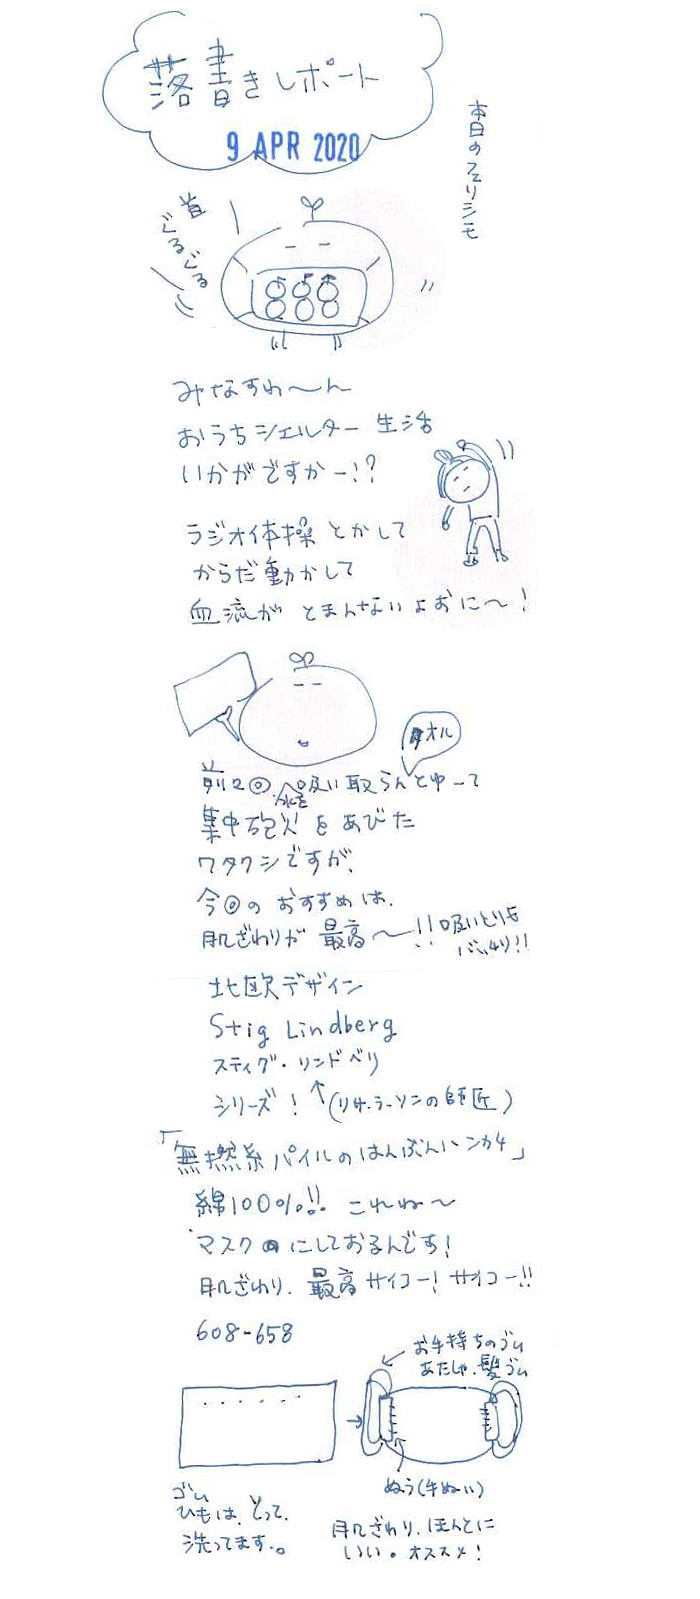 落書きレポート
9 APR 2020
本日のフェリシモ
首
ぐるぐる
みなすわ〜ん
おうちシェルター 生活
いかがですかー!?
ラジオ体操 とかして
からだ動かして
血流が とまんないよおに〜!
タオル
前回 水を 吸い取らんとゆーて
集中砲火をあびた
ワタクシですが、
今回の おすすめは、
肌ざわりが 最高〜!! 吸いとりも
バッチリ!!
北欧デザイン
Stig Lindberg
スティグ・リンドベリ
シリーズ! ↑(リサ・ラーソンの師匠)
「無撚糸パイルのはんぶんハンカチ」
綿100%!! これね〜
マスクにしておるんです!
肌ざわり、最高 サイコー! サイコー!!
608-658
お手持ちのゴム
あたしゃ、髪ゴム
ぬう(手ぬい)
ゴム
ひもは、とって、
洗ってます。
肌ざわり、ほんとに
いい。オススメ!